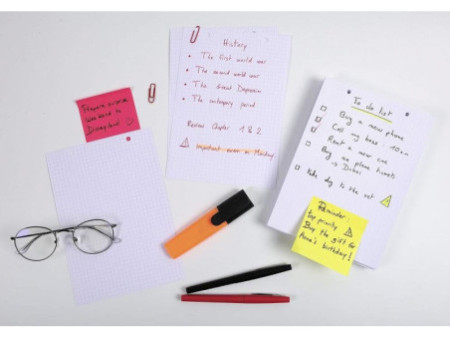 Prepare surprise
weekend in
Disneyland
History
• The first world war
• The second world war
• The Great Depression
• The
period
Review Chapter 1 & 2
Important exam on Monday
To do list
Buy a new phone
Call my boss: 10am
Rent a new car
Buy plane tickets
to Dubai
Take dog to the vet
Reminder
top priority
Buy the gift for
Anna's birthday!